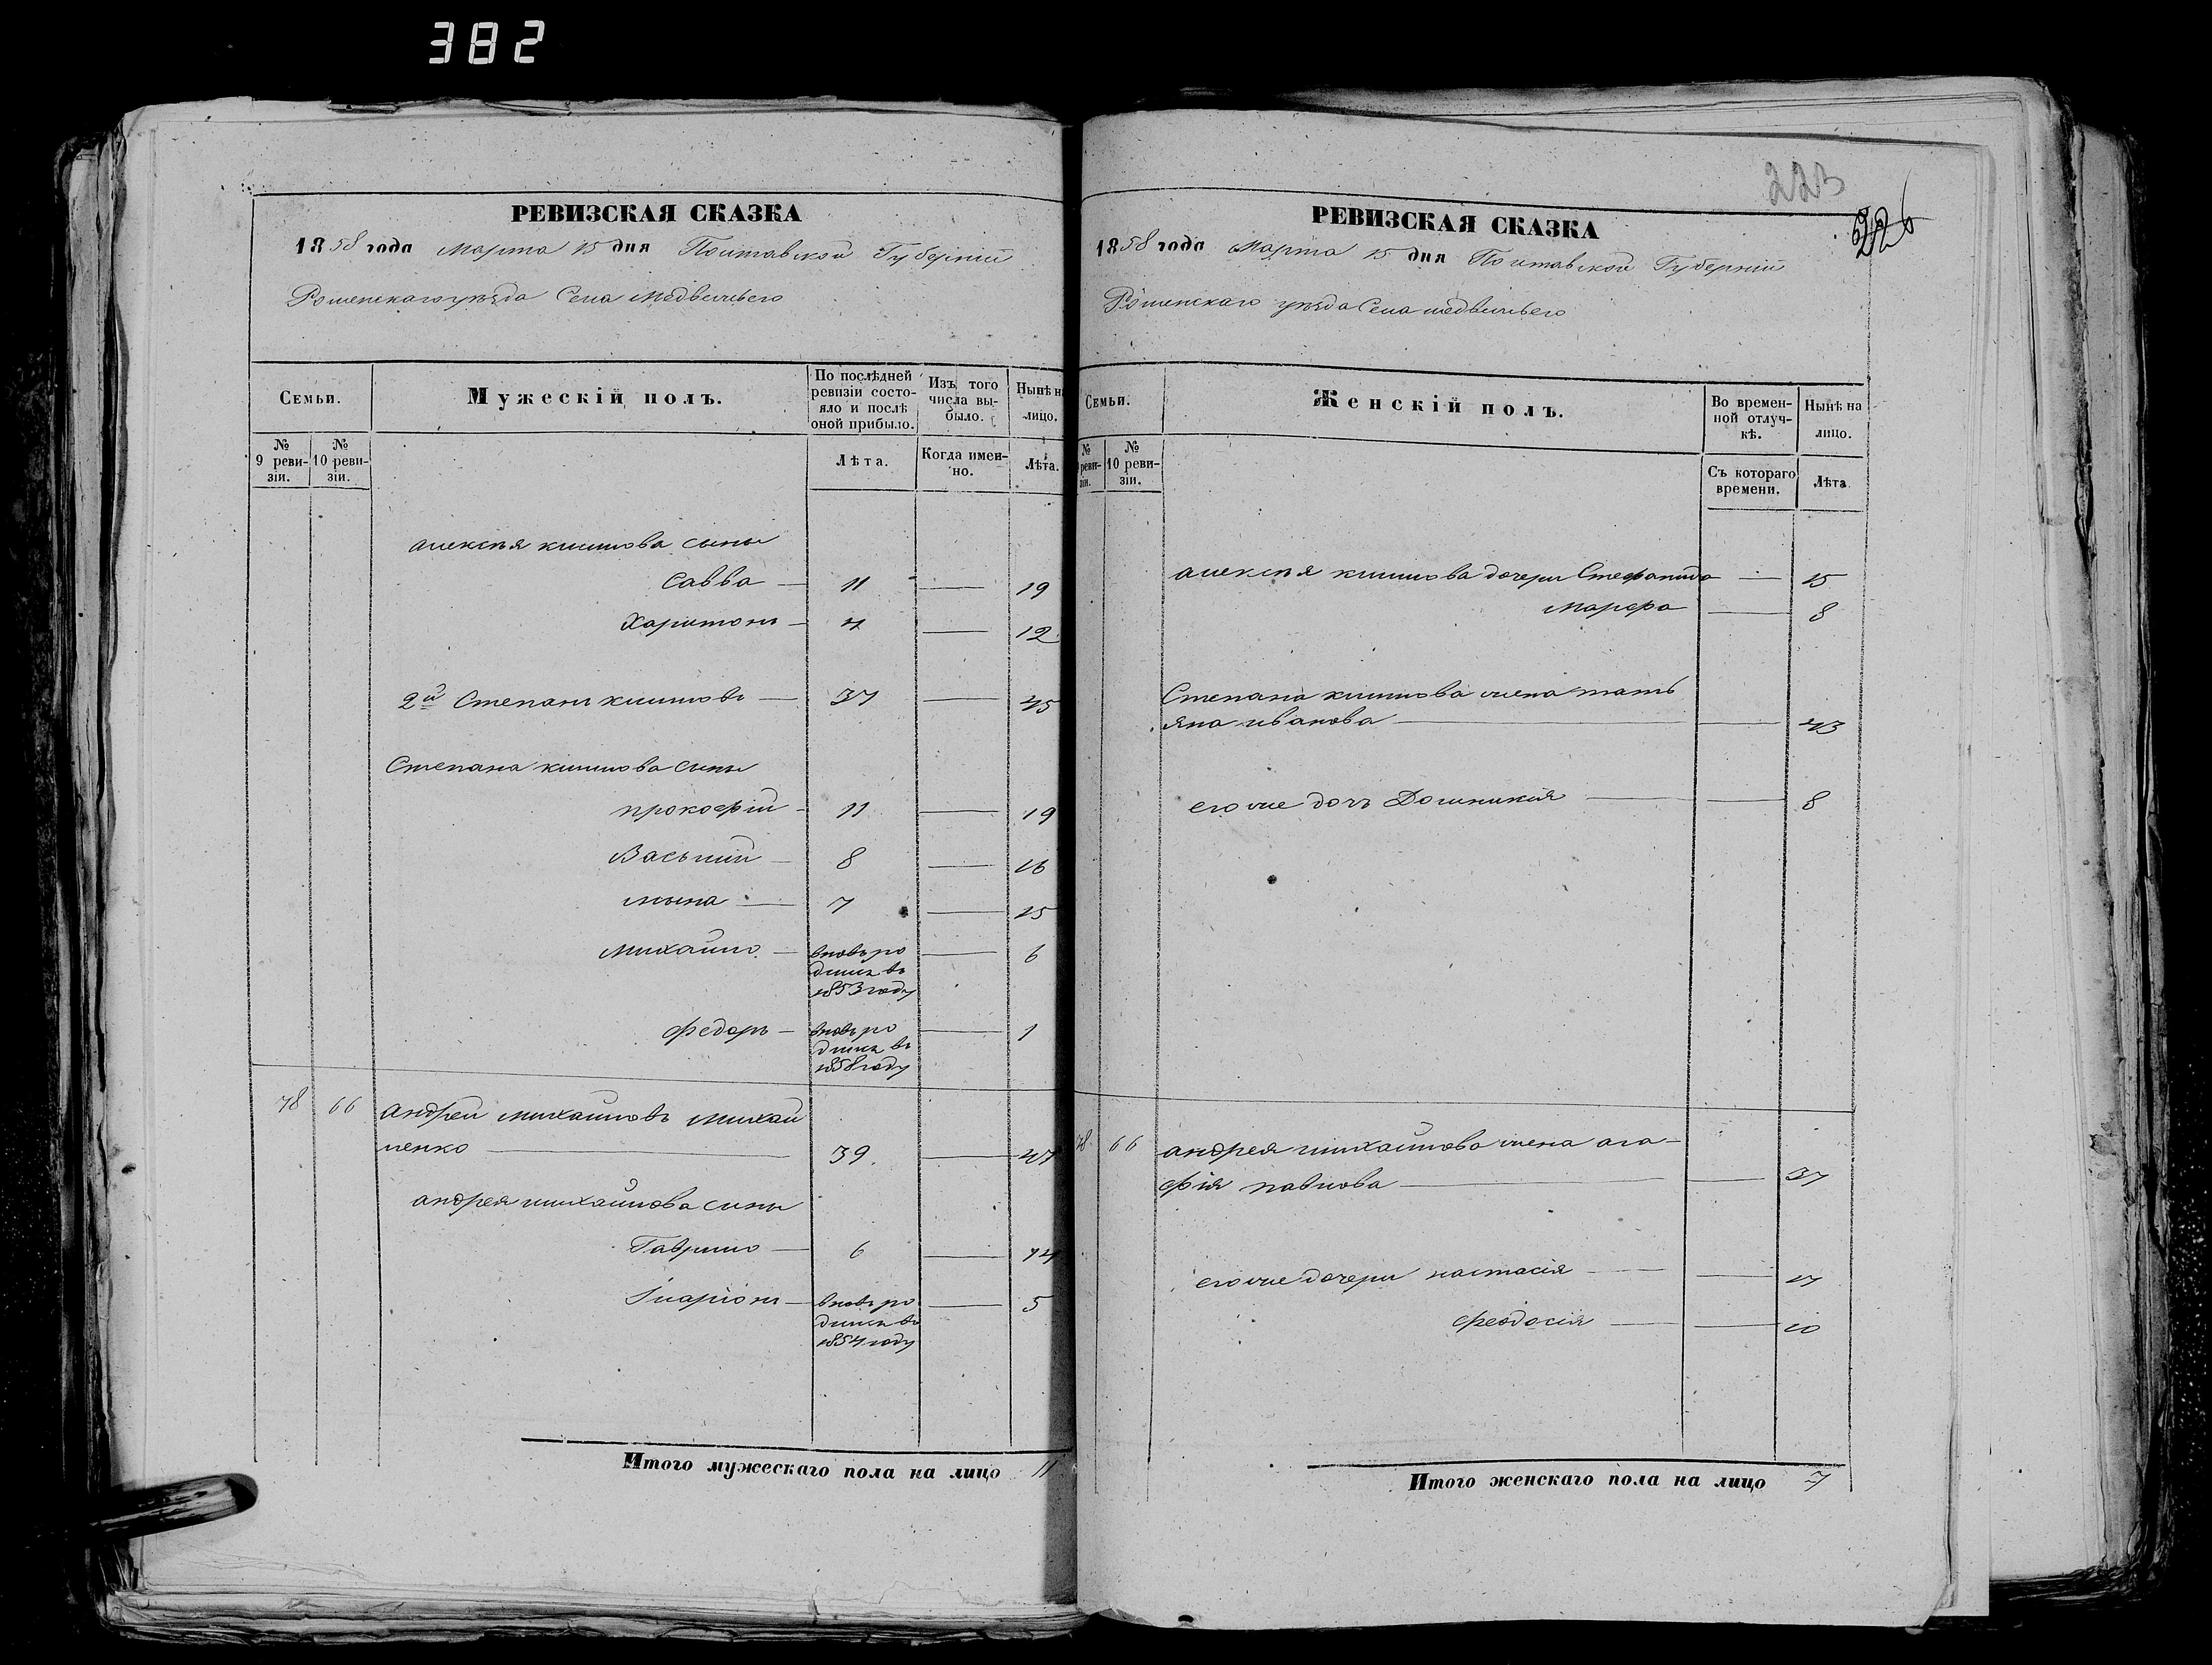 382
РЕВИЗСКАЯ СКАЗКА
1858 года Марта 15 дня Полтавской Губерніи
Роменскаго уезда Села Медвежьего
Семьи.
Мужескій полъ.
По послѣдней ревизіи состояло и послѣ оной прибыло.
Изъ того числа выбыло.
Нынѣ на лицо.
№ 9 ревизіи.
№ 10 ревизіи.
Лѣта.
Когда именно.
Лѣта.
алексѣя климова сыны
Савва — 11 — 19
Харитонъ — 4 — 12
2й Степанъ климовъ — 37 — 45
Степана климова сыны
прокофій — 11 — 19
Василий — 8 — 16
мына — 7 — 15
Михайло — вновь ро — 6
дился въ
1853 году
федоръ — вновь ро — 1
дился въ
1858 году
78 66 андрей михайловъ михай
ленко — 39. — 47
андрея михайлова сыны
Гаврило — 6 — 14
Іларіонъ — вновь ро — 5
дился въ
1854 году
Итого мужескаго пола на лицо 11
223
226
РЕВИЗСКАЯ СКАЗКА
1858 года Марта 15 дня Полтавской Губерніи
Роменскаго уезда Села медвежьего
Семьи.
Женскій полъ.
Во временной отлучкѣ.
Нынѣ на лицо.
№ ревизіи.
№ 10 ревизіи.
Съ котораго времени.
Лѣта
алексѣя климова дочери Стефанида — 15
Марфа — 8
Степана климова жена тать
яна иванова — 43
его же дочь Домникія — 8
78 66 андрея михайлова жена ага-
фія павлова — 37
его же дочери настасія — 17
феодосія — 10
Итого женскаго пола на лицо 7